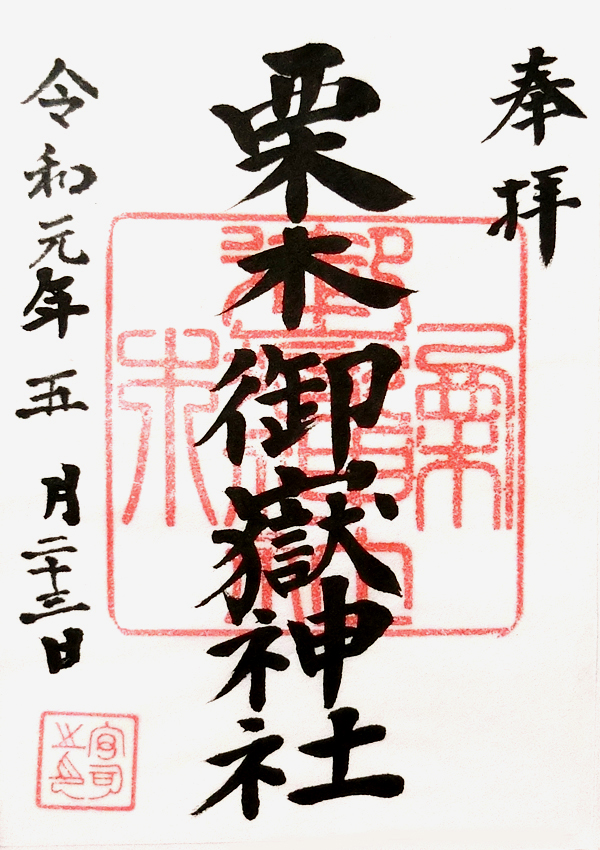 奉拝
栗木御嶽神社
令和元年五月二十三日
宮司之印